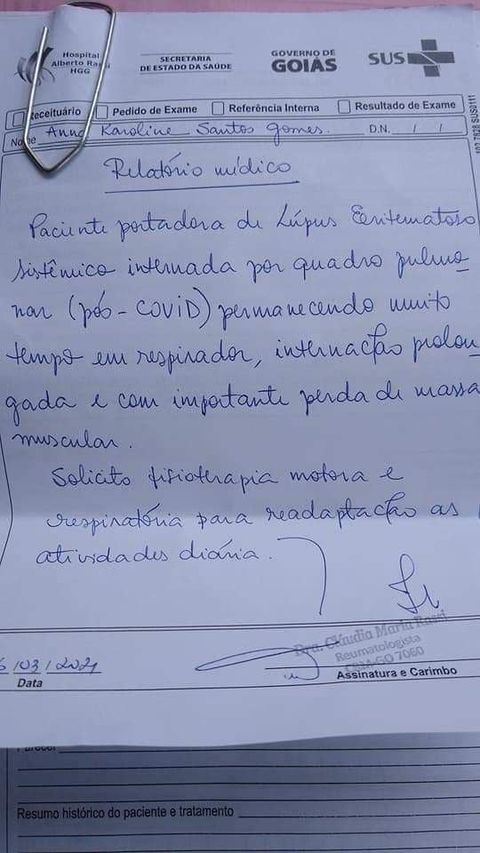 Hospital
Alberto Rassi
HGG
SECRETARIA
DE ESTADO DA SAÚDE
GOVERNO DE
GOIÁS
SUS
Receituário Pedido de Exame Referência Interna Resultado de Exame
Nome Anna Karoline Santos Gomes. D.N. / /
Relatório médico
Paciente portadora de Lúpus Eritematoso
sistêmico internada por quadro pulmo-
nar (pós-COVID) permanecendo muito
tempo em respirador, internação prolon-
gada e com importante perda de massa
muscular.
Solicito fisioterapia motora e
respiratória para readaptação as
atividades diária.
Dra. Cláudia Maria Rassi
Reumatologista
CRM-GO 7060
/03/2021
Data
Assinatura e Carimbo
Resumo histórico do paciente e tratamento